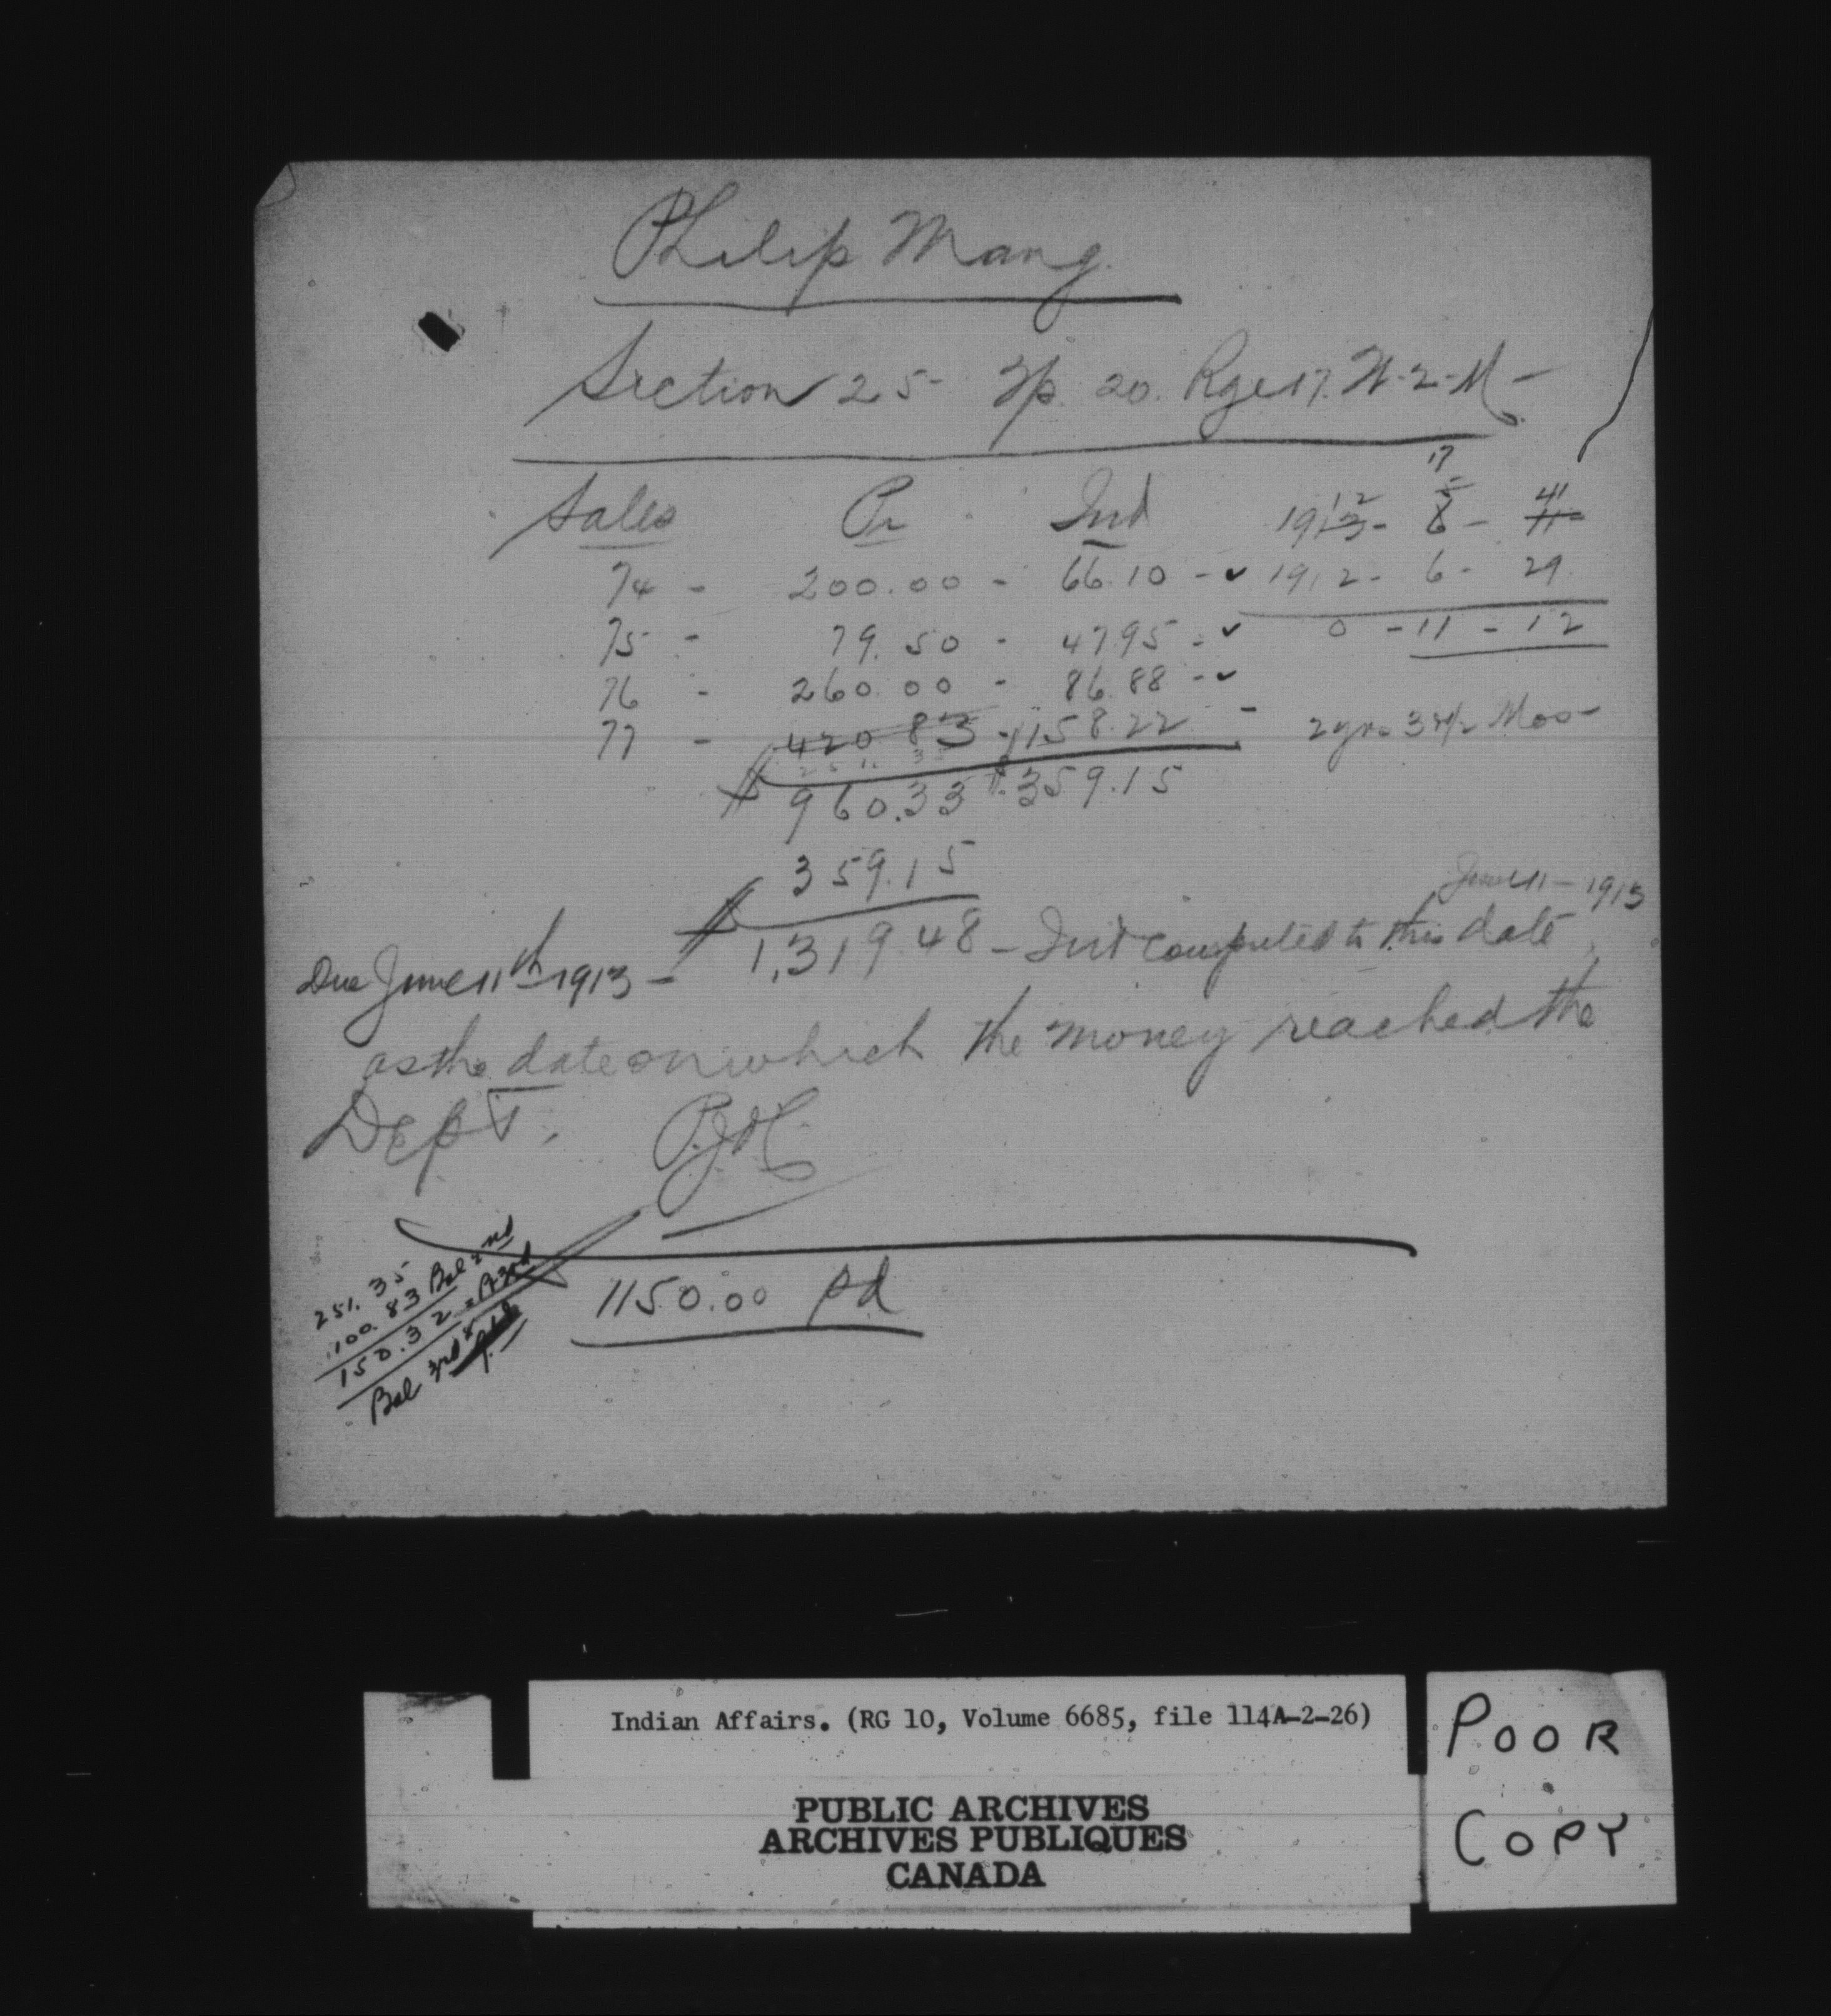 Philip Mang.
Section 25- Tp. 20. Rge 17. W-2-M-
Sales Pr. Int
74 - 200.00 - 66.10 - ✓
75 - 79.50 - 47.95 - ✓
76 - 260.00 - 86.88 - ✓
77 - 420 83 - 158.22 - 2 yrs 3 1/2 Mos-
251. 35
$960.33 $359.15
359.15
$1,319.48 - Int computed to this date
17
12 5 41
1913- 6- 11-
1912- 6- 29
0 - 11 - 12
June 11 - 1913
Due June 11th 1913 -
as the date on which the money reached the
Dept.
1150.00 pd
251. 35
100. 83 Bal 2nd
150.32
Bal 3rd
Indian Affairs. (RG 10, Volume 6685, file 114A-2-26)
PUBLIC ARCHIVES
ARCHIVES PUBLIQUES
CANADA
POOR
COPY